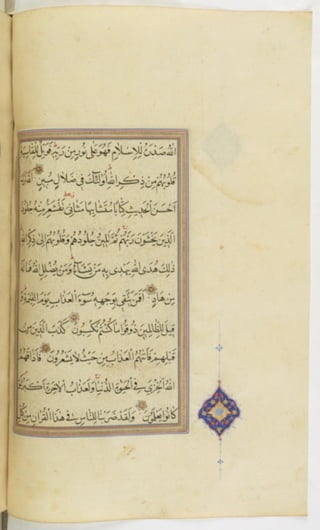 الله صدره للاسلام فهو على نور من ربه فويل للقاسية
قلوبهم من ذكر الله اولئك في ضلال مبين الله نزل
احسن الحديث كتابا متشابها مثاني تقشعر منه جلود
الذين يخشون ربهم ثم تلين جلودهم وقلوبهم الى ذكر الله
ذلك هدى الله يهدي به من يشاء ومن يضلل الله فما له
من هاد افمن يتقي بوجهه سوء العذاب يوم القيمة و
قيل للظالمين ذوقوا ما كنتم تكسبون كذب الذين من
قبلهم فاتيهم العذاب من حيث لا يشعرون فاذاقهم
الله الخزي في الحيوة الدنيا ولعذاب الاخرة اكبر لو
كانوا يعلمون ولقد ضربنا للناس في هذا القران من كل